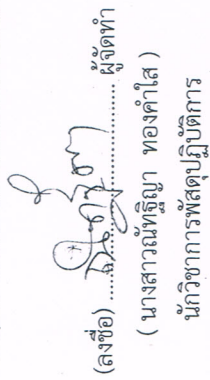 (ลงชื่อ) ........................ ผู้จัดทำ
( นางสาวณัทฐิญา ทองคำใส )
นักวิชาการพัสดุปฏิบัติการ